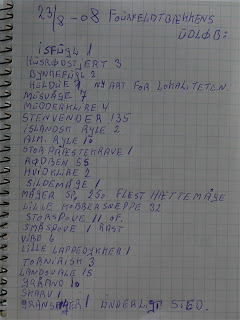 23/8-08 FOÚNFELDTBÆKKENS
ÚDLØB:
ISFÚGL 1
HÚSRØDSTJERT 3
BYNKEFÚGL 2
HÚLDÚE 1 NY ART FOR LOKALITETEN
MÚSVÅGE 7
MÚDDERKLIRE 4
STENVENDER 135
ISLANDSK RYLE 2
ALM. RYLE 10
STOR PRÆSTEKRAVE 1
RØDBEN 55
HVIDKLIRE 2
SILDEMÅGE 1
MÅGER SP. 250. FLEST HÆTTEMÅGE
LILLE KOBBERSNEPPE 32
STORSPOVE 11 OF.
SMÅSPOVE 1 RAST
VIBE 6
LILLE LAPPEDYKKER 1
TÅRNFALK 3
LANDSVALE 15
GRÅAND 10
SKARV 1
GRANSANGER 1 ÚNDERLIGT STED.